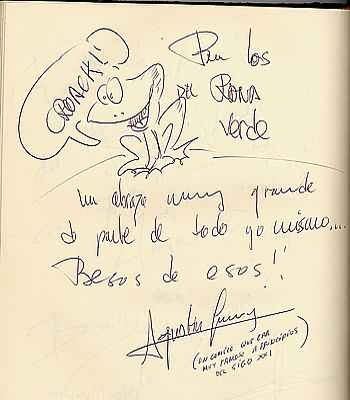 CROACK!!
Para los
DEL RANA
verde
Un abrazo muy grande
de parte de todo yo mismo...
Besos de esos!!
Agustín
(UN CÓMICO QUE ERA
MUY FAMOSO A PRINCIPIOS
DEL SIGO XXI)